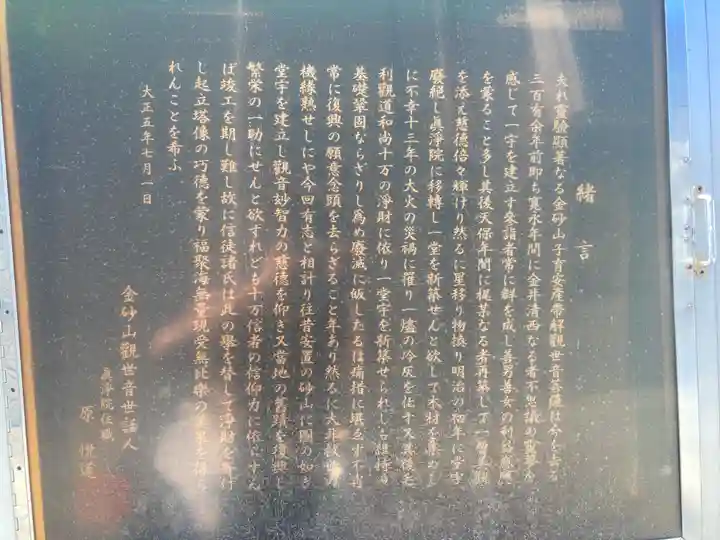 緒言
夫れ靈驗顯著なる金砂山子育安産帶解觀世音菩薩は今を去る
三百有余年前即ち寛永年間に金井清西なる者不思議の
感じて一宇を建立す來詣者常に群を成し善男善女の利益
を蒙ること多し其後天保年間に梶某なる者再築して一層
を添え慈德倍々輝けり然るに星移り物換り明治の初年に堂宇
廢絶し眞淨院に移轉し一堂を新築せんと欲して木材を集めし
に不幸十三年の大火の災禍に罹り一燼の冷灰を化す又其後
利觀道和尚十万の淨財に依り一堂宇を新築せられし
基礎鞏固ならざりし爲め廢滅に皈したるは痛惜に堪えず不肖
常に復興の願意念頭を去らざること年あり然るに大非
機緣熟せしにや今回有志と相計り往昔安置の砂山に圖の如き
堂宇を建立し觀音妙智力の慈德を仰き又當地の舊蹟を復興し
繁栄の一助にせんと欲すれども十万信者の信仰力に依らずん
ば竣工を期し難し故に信徒諸氏は此の擧を替して淨財を
し起立塔像の巧德を蒙り福聚海無量現受無比樂の
れんことを希ふ
大正五年七月一日
金砂山觀世音世話人
眞淨院住職
原 道